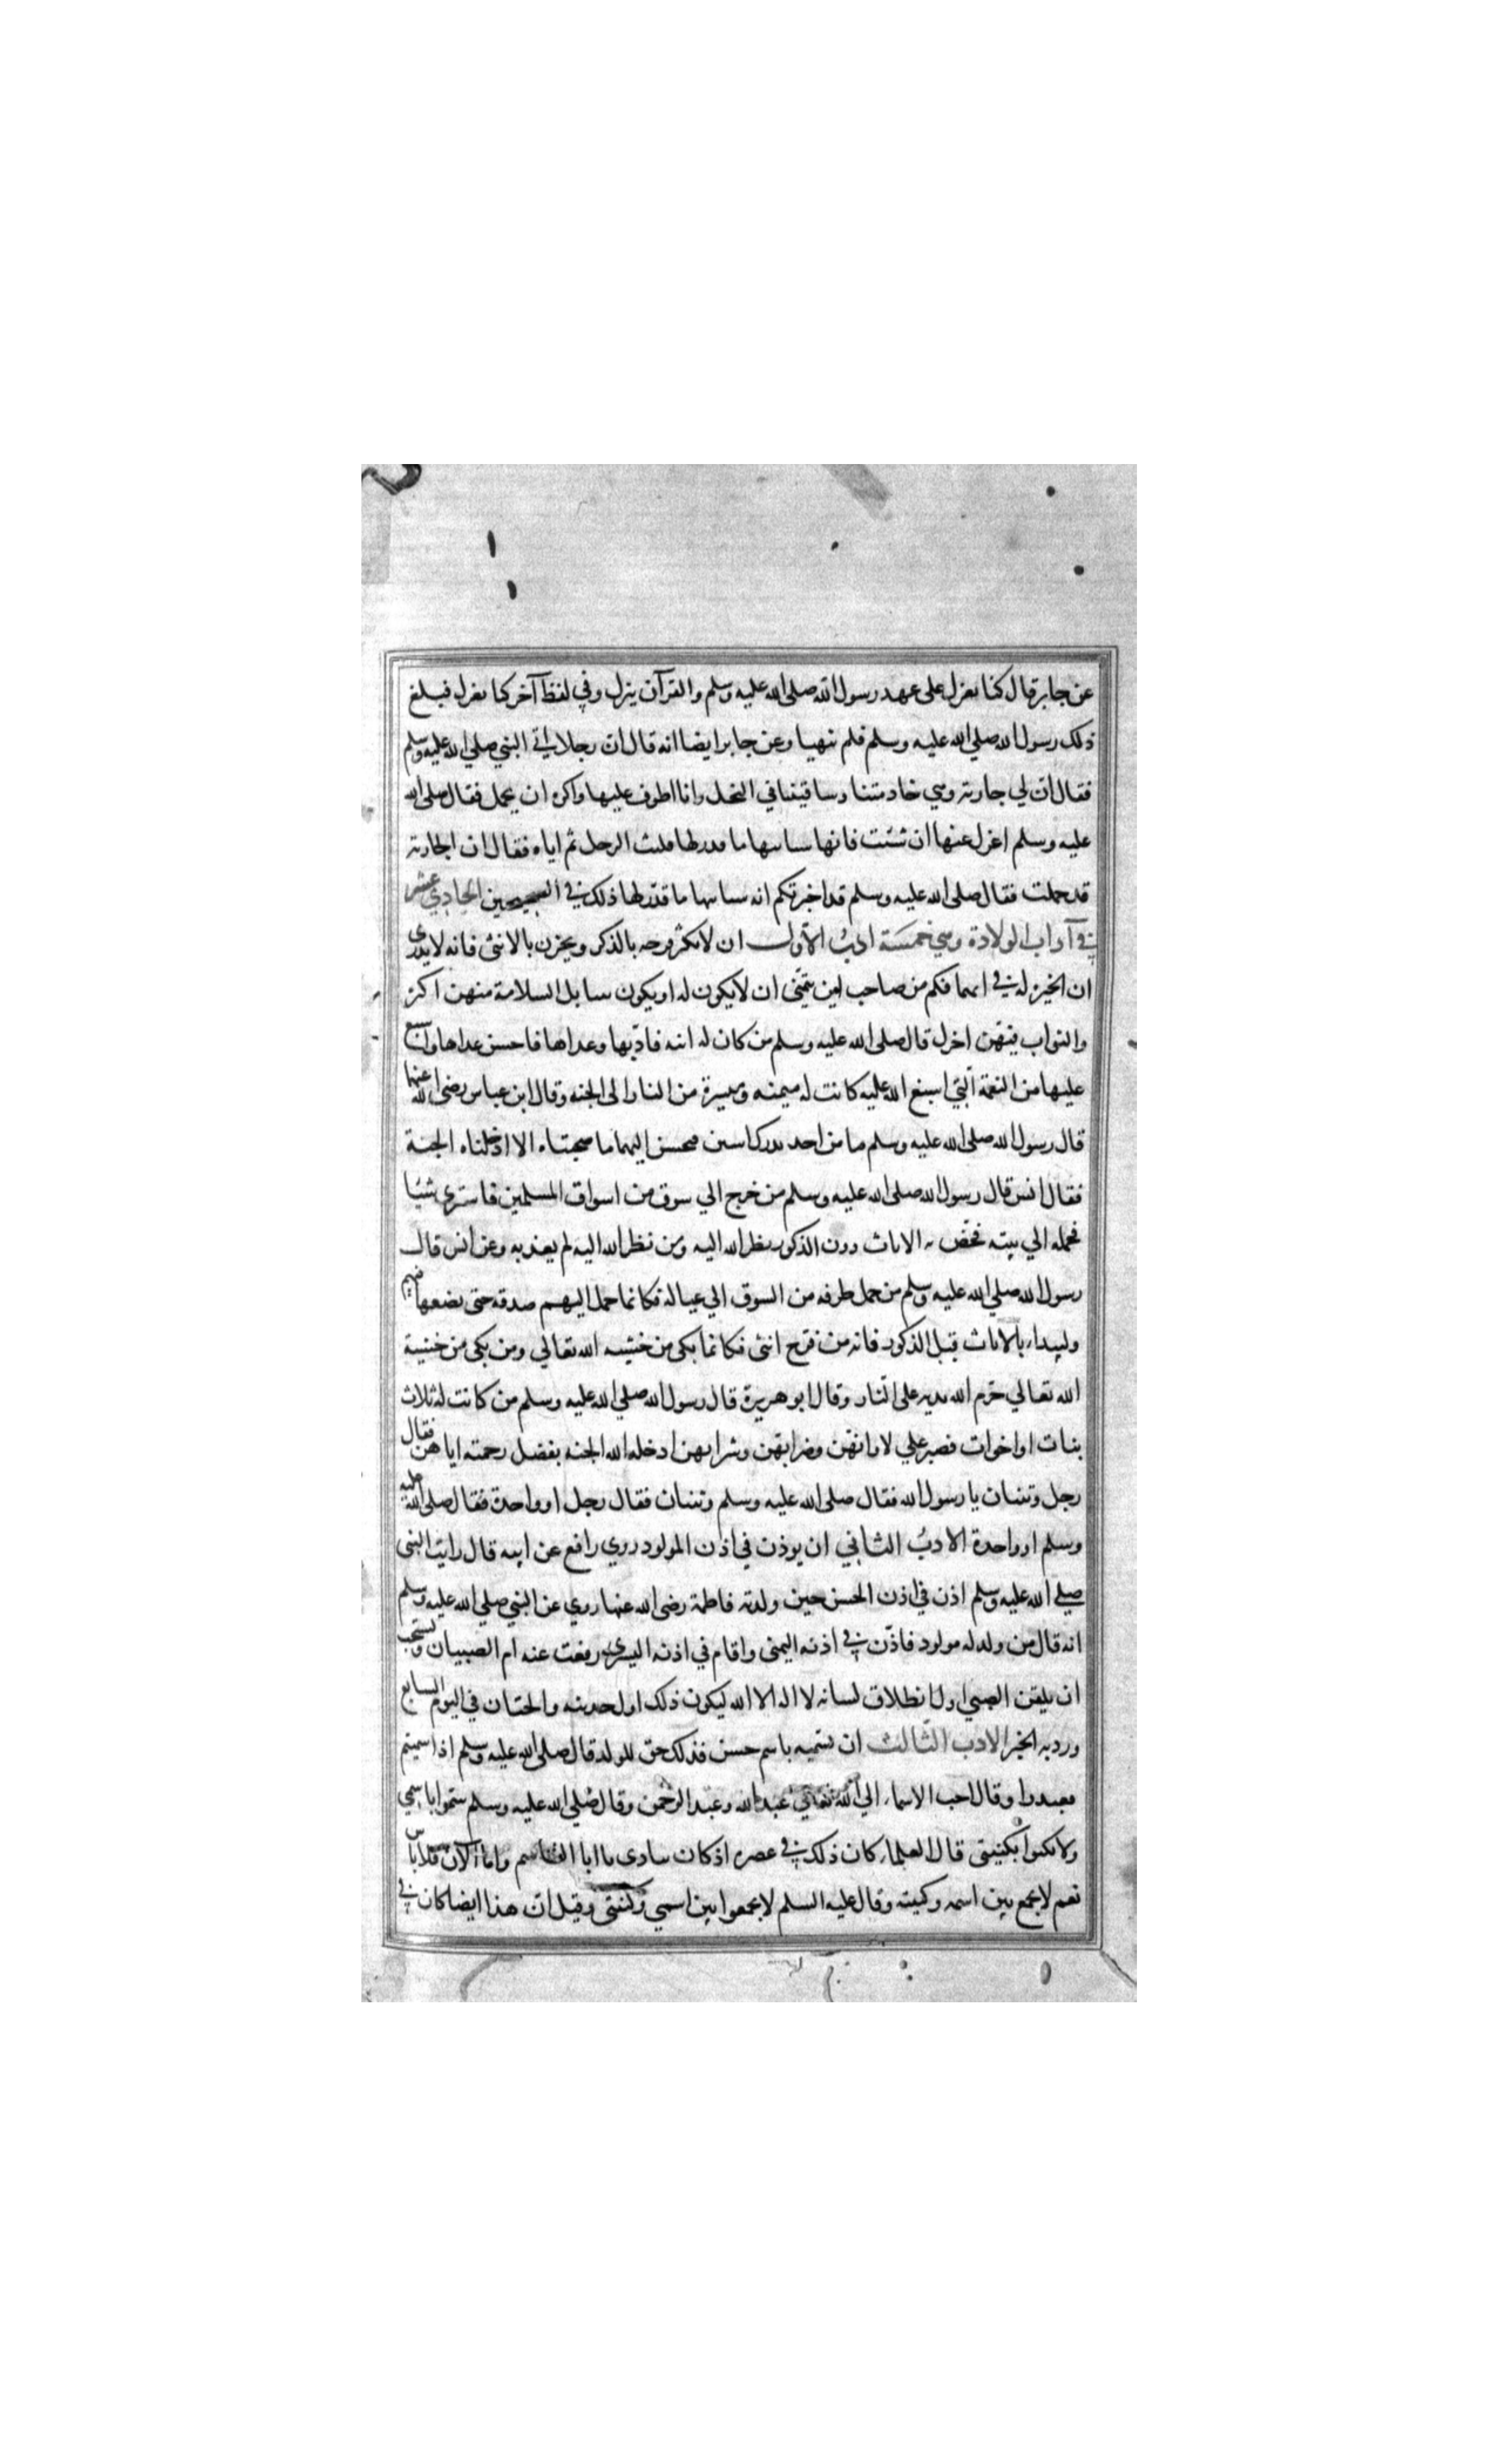 عن جابر قال كنا نعزل على عهد رسول الله صلى الله عليه وسلم والقرآن ينزل وفي لفظ آخر كنا نعزل فبلغ
ذلك رسول الله صلي الله عليه وسلم فلم ينهيا وعن جابر ايضا انه قال ان رجلا اتى النبي صلي الله عليه وسلم
فقال ان لي جارية وهي خادمتنا وساقيتنا في النخل وانا اطوف عليها واكره ان تحمل فقال صلى الله
عليه وسلم اعزل عنها ان شئت فانها سياتيها ما قدر لها فلبث الرجل ثم اتاه فقال ان الجارية
قد حملت فقال صلى الله عليه وسلم قد اخبرتكم انه سياتيها ما قدر لها ذلك في الصحيحين الحادي عشر
في آداب الولادة وهي خمسة ادب الاول ان لا يكثر فرحه بالذكر ويحزن بالانثى فانه لا يدري
ان الخيرله في ايهما فكم من صاحب ابن يتمنى ان لا يكون له او يكون بنتا بل السلامة منهن اكثر
والثواب فيهن اجزل قال صلى الله عليه وسلم من كان له ابنة فادبها وغداها فاحسن غداها واسبغ
عليها من النعمة التي اسبغ الله عليه كانت له ميمنه وميسرة من النار الى الجنه وقال ابن عباس رضى الله عنهما
قال رسول الله صلى الله عليه وسلم ما من احد يدرك ابنتين فيحسن اليهما ما صحبتاه الا ادخلتاه الجنة
فقال انس قال رسول الله صلى الله عليه وسلم من خرج الي سوق من اسواق المسلمين فاشترى شيئا
فحمله الي بيته فخص به الاناث دون الذكور نظر الله اليه ومن نظر الله اليه لم يعذبه وعن انس قال
رسول الله صلي الله عليه وسلم من حمل طرفه من السوق الي عياله فكانما حمل اليهم صدقه حتى يضعها فيهم
وليبداء بالاناث قبل الذكور فانه من فرح انثى فكانما بكى من خشيه الله تعالي ومن بكى من خشية
الله تعالي حرم الله بدنه على النار وقال ابو هريرة قال رسول الله صلي الله عليه وسلم من كانت له ثلاث
بنات او اخوات فصبر علي لاوائهن وضرائهن وسرائهن ادخله الله الجنه بفضل رحمته اياهن فقال
رجل وثنتان يا رسول الله فقال صلى الله عليه وسلم وثنتان فقال رجل او واحدة فقال صلى الله عليه
وسلم او واحدة الادب الثاني ان يوذن في اذن المولود روي رافع عن ابيه قال رايت النبى
صلي الله عليه وسلم اذن في اذن الحسن حين ولدته فاطمة رضى الله عنها روي عن النبي صلي الله عليه وسلم
انه قال من ولد له مولود فاذن في اذنه اليمنى واقام في اذنه اليسرى رفعت عنه ام الصبيان ويستحب
ان يلقن الصبي اول انطلاق لسانه لا اله الا الله ليكون ذلك اول حديثه والختان في اليوم السابع
ورد به الخبر الادب الثالث ان تسميه باسم حسن فذلك حق للولد قال صلى الله عليه وسلم اذا سميتم
فعبدوا وقال احب الاسماء الي الله تعالي عبد الله وعبد الرحمن وقال صلى الله عليه وسلم سموا باسمي
ولا تكنوا بكنيتى قال العلماء كان ذلك في عصره اذ كان ينادى يا ابا القاسم واما الآن فلا باس
نعم لا يجمع بين اسمه وكنيته وقال عليه السلم لا تجمعوا بين اسمي وكنيتى وقيل ان هذا ايضا كان في